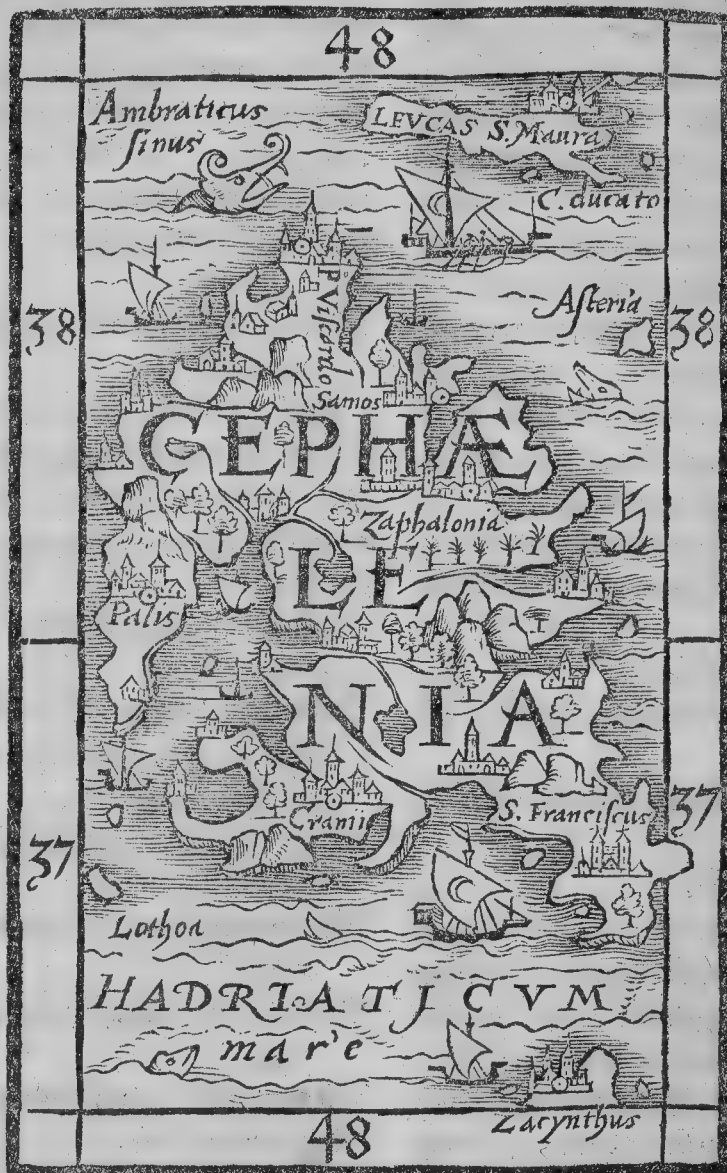 48
Ambraticus
ſinus
LEVCAS S. Maura
C. ducato
P. Viſcardo
Aſteria
38
38
Samos
CEPHÆ
Zaphalonia
LE
Palis
NIA
Cranii
S. Franciſcus
37
37
Lothoa
HADRIATICVM
mare
Zacynthus
48